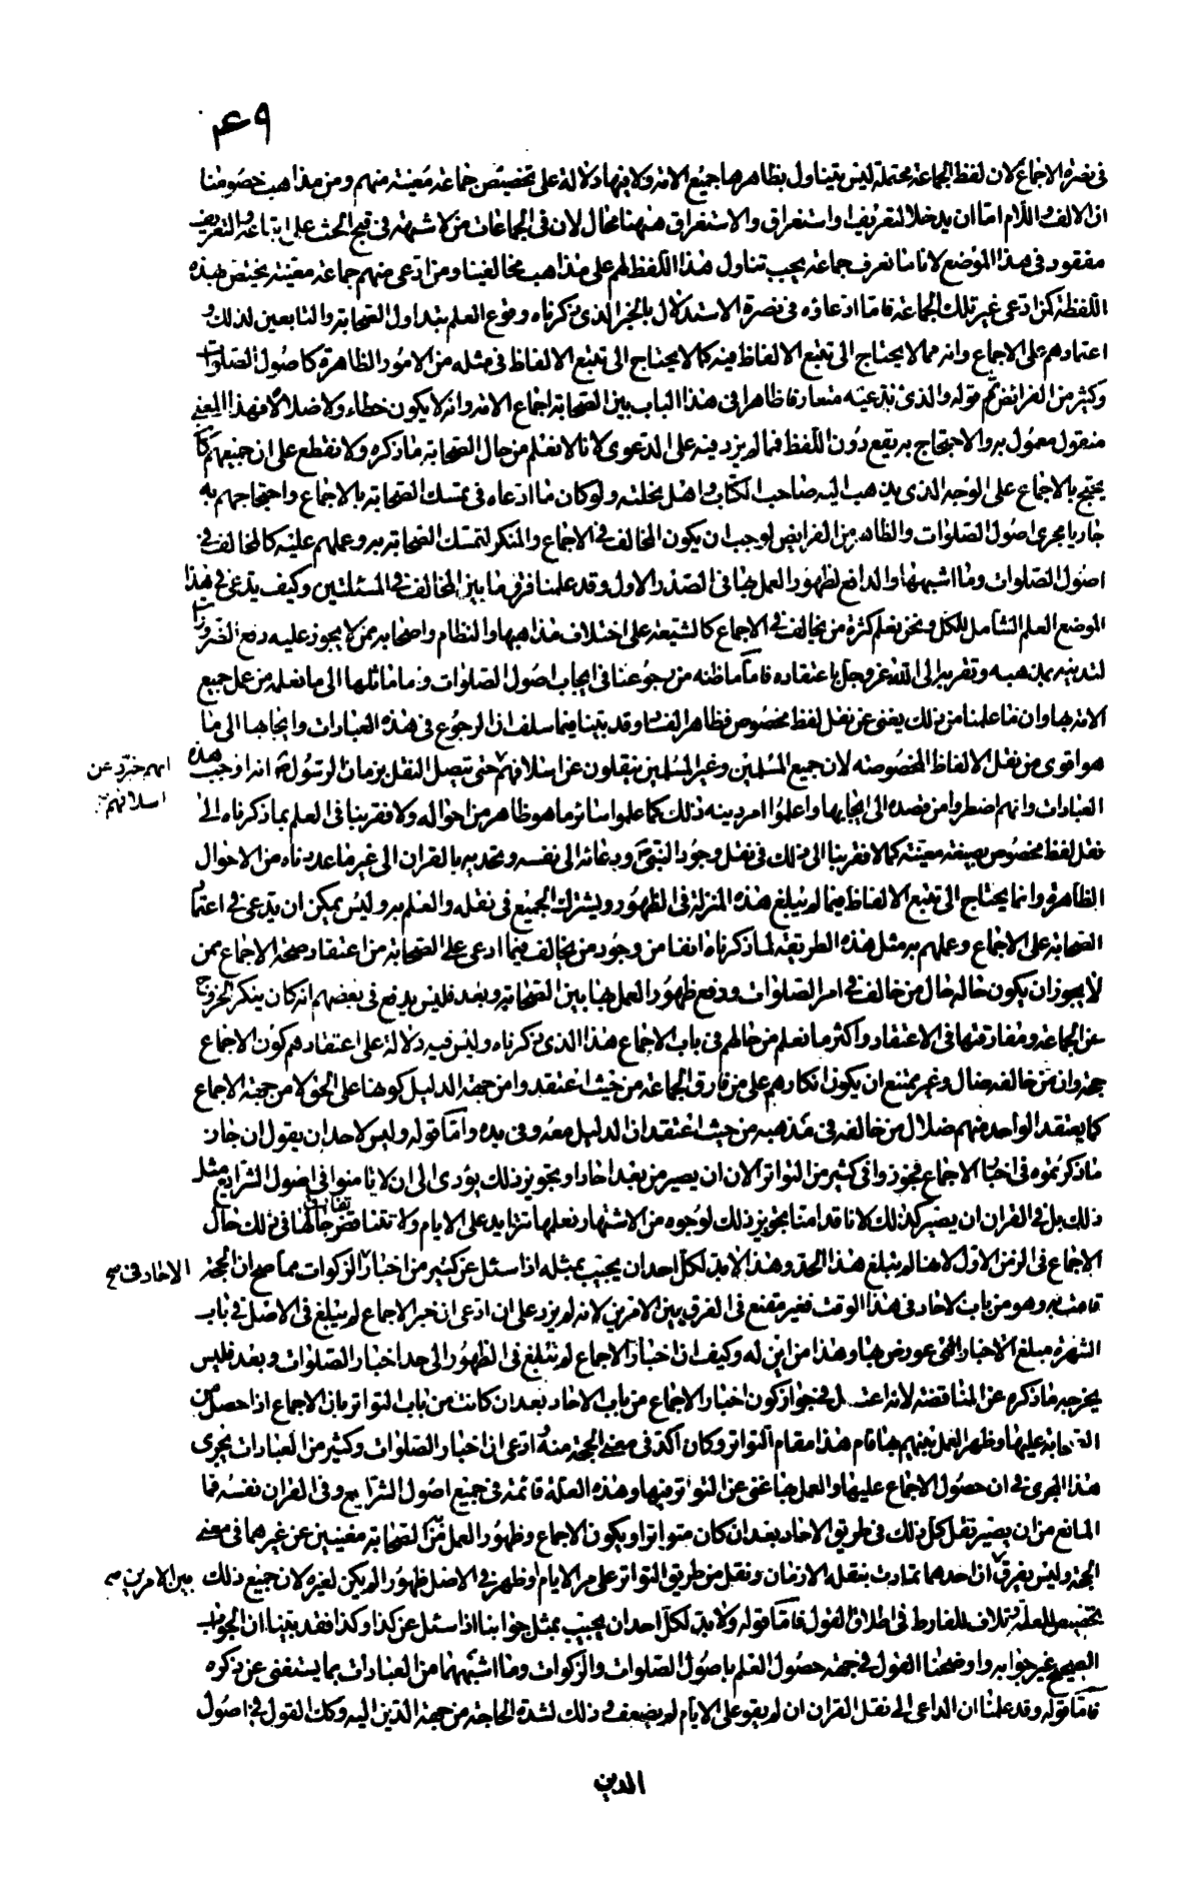 ٤٩
في نصرة الاجماع لان لفظ الجماعة محتملة ليس يتناول بظاهرها جميع الامة ولا فيها دلالة على تخصيص جماعة معينة منهم ومن مذاهب خصومنا
ان الالف واللام اما ان يدخلا لتعريف او استغراق والاستغراق ههنا محال لان في الجماعات من لا شبهة في قبح الحث على اتباعه والتعريف
مفقود في هذا الموضع لانا ما نعرف جماعة يجب تناول هذا اللفظ لهم على مذاهب مخالفينا ومن ادعى منهم جماعة معينة يختص بهذه
اللفظة كمن ادعى غير تلك الجماعة فاما ادعاؤه في نصرة الاستدلال بالخبر الذي ذكرناه وقوع العلم بتداول الصحابة والتابعين لذلك و
اعتمادهم على الاجماع وانه مما لا يحتاج الى تتبع الالفاظ فيه كما لا يحتاج الى تتبع الالفاظ في مثله من الامور الظاهرة كاصول الصلوات
وكثير من الفرائض ثم قوله والذي ندعيه متعارفا ظاهرا في هذا الباب بين الصحابة اجماع الامة وانه لا يكون خطاء ولا ضلالا فهذا المعنى
منقول معمول به والاحتجاج به يقع دون اللفظ فما لم يزد فيه على الدعوى لانا لا نعلم من حال الصحابة ما ذكره ولا نقطع على ان جميعهم كان
يحتج بالاجماع على الوجه الذي يذهب اليه صاحب الكتاب واهل نحلته ولو كان ما ادعاه في تمسك الصحابة بالاجماع واحتجاجهم به
جاريا مجرى اصول الصلوات والظاهر من الفرايض لوجب ان يكون المخالف في الاجماع والمنكر لتمسك الصحابة به وعملهم عليه كالمخالف في
اصول الصلوات وما اشبهها والدافع لظهور العمل بها في الصدر الاول وقد علمنا فرق ما بين المخالف في المسئلتين وكيف يدعى في هذا
الموضع العلم الشامل للكل ونحن نعلم كثرة من يخالف في الاجماع كالشيعة على اختلاف مذاهبها والنظام واصحابه ممن لا يجوز عليه دفع الضرورات
لتدينه بمذهبه وتقربه الى الله عز وجل باعتقاده فاما ما ظنه من رجوعنا في ايجاب اصول الصلوات وما ماثلها الى ما نعلمه من عمل جميع
الامة بها وان ما علمنا من ذلك يغني عن نقل لفظ مخصوص فظاهر الفساد وقد بينا فيما سلف ان الرجوع في هذه العبادات وايجابها الى ما
هو اقوى من نقل الالفاظ المخصوصة لان جميع المسلمين وغير المسلمين ينقلون عن اسلافهم حتى يتصل النقل بزمان الرسول انه اوجب هذه
انهم خبرو عن
اسلافهم
العبادات وانهم اضطروا من قصده الى ايجابها واعلموا امر دينه ذلك كما علموا سائر ما هو ظاهر من احواله ولا فقر بنا في العلم بما ذكرناه الى
نقل لفظ مخصوص بصيغة معينة كما لا فقر بنا الى ذلك في نقل وجود النبي ودعائه الى نفسه وتحديه بالقران الى غير ما عددناه من الاحوال
الظاهرة وانما يحتاج الى تتبع الالفاظ فيما لم يبلغ هذه المنزلة في الظهور ويشترك الجميع في نقله والعلم به وليس يمكن ان يدعى في اعتماد
الصحابة على الاجماع وعملهم به مثل هذه الطريقة لما ذكرناه انفا من وجود من يخالف فيما ادعى على الصحابة من اعتقاد صحة الاجماع ممن
لا يجوز ان يكون حاله حال من خالف في امر الصلوات ودفع ظهور العمل بها بين الصحابة وبعد فليس يدفع في بعضهم انه كان ينكر الخروج
عن الجماعة ومفارقتها في الاعتقاد واكثر ما نعلم من حالهم في باب الاجماع هذا الذي ذكرناه وليس فيه دلالة على اعتقادهم كون الاجماع
حجة وان من خالفه ضال وغير ممتنع ان يكون انكارهم على من فارق الجماعة من حيث اعتقدوا من جهة الدليل كونها على الحق لا من جهة الاجماع
كما يعتقد الواحد منهم ضلال من خالفه في مذهبه من حيث اعتقد ان الدليل معه وفي يده واما قوله وليس لاحد ان يقول ان جاز
ما ذكرتموه في اخبار الاجماع فجوزوا في كثير من التواتر الان ان يصير من بعد احادا وتجويز ذلك يؤدى الى ان لا تامنوا في اصول الشرايع مثل
ذلك بل في القران ان يصير كذلك لانا قد امنا تجويز ذلك لوجوه من الاشتهار نعلمها تتزايد على الايام ولا تتناقض حالها في ذلك حال
الاجماع في الزمن الاول لانها لم يبلغ هذا الحد وهذا لابد لكل احد ان يجيب بمثله اذا سئل عن كثير من اخبار الزكوات مما صح ان الحجة
الاحاد في صح
قامت به وهو من باب الاحاد في هذا الوقت فغير مقنع في الفرق بين الامرين لانه لم يزد على ان ادعى ان خبر الاجماع لم يبلغ في الاصل في باب
الشهرة مبلغ الاخبار التي عورض بها وهذا من اين له وكيف ان اخبار الاجماع لم تبلغ في الظهور الى حد اخبار الصلوات وبعد فليس
يخرجه ما ذكره عن المناقضة لانه اعتل في جواز كون اخبار الاجماع من باب الاحاد بعد ان كانت من باب التواتر بان الاجماع اذا حصل من
الصحابة عليها وظهر العمل بينهم بها قام هذا مقام التواتر وكان آكد في معنى الحجة منه وادعى ان اخبار الصلوات وكثير من العبادات يجرى
هذا المجرى في ان حصول الاجماع عليها والعمل بها غني عن التواتر فيها وهذه العلة قائمة في جميع اصول الشرايع وفي القران نفسه فما
المانع من ان يصير نقل كل ذلك في طريق الاحاد بعد ان كان متواترا ويكون الاجماع وظهور العمل من الصحابة مغنيين عن غيرهما في معنى
الحجة وليس يفرق ان احدهما تمادت بنقله الازمان ونقل من طريق التواتر على مر الايام او ظهر في الاصل ظهورا لم يكن لغيره لان جميع ذلك
بين الامرين صح
تخصيص للعلة وتلاف للفارط في اطلاق القول فاما قوله ولابد لكل احد ان يجيب بمثل جوابنا اذا سئل عن كذا وكذا فقد بينا ان الجواب
الصحيح غير جوابه واوضحنا القول في جهة حصول العلم باصول الصلوات والزكوات وما اشبههما من العبادات بما يستغنى عن ذكره
فاما قوله وقد علمنا ان الداعي الى نقل القران ان لم يقو على الايام لم يضعف وذلك لشدة الحاجة من جهة الدين اليه وكك القول في اصول
الدين